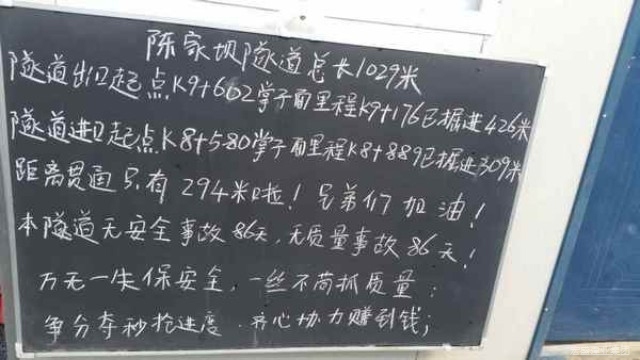 陈家坝隧道总长1029米
隧道出口起点K9+602掌子面里程K9+176已掘进426米
隧道进口起点K8+580掌子面里程K8+889已掘进309米
距离贯通只有294米啦！兄弟们加油！
本隧道无安全事故86天,无质量事故86天！
万无一失保安全,一丝不苟抓质量：
争分夺秒抢进度.齐心协力赚到钱；